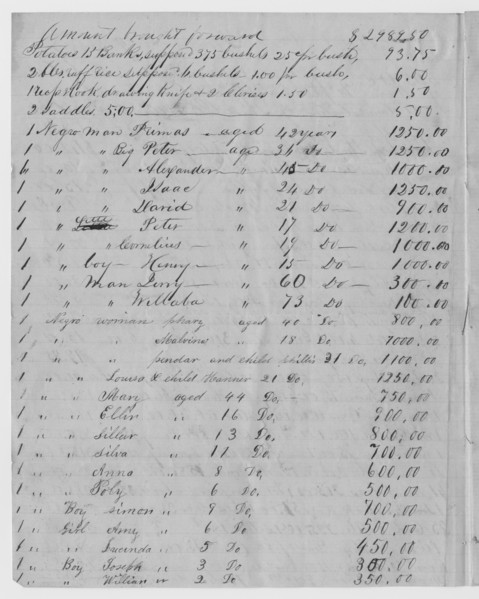 Amount brought forward $ 2989.50
Potatoes 15 Banks, suppend 375 bushels 25c pr bush, 93.75
2 bbs, ruff rice suppend 6 bushels 1.00 pr bush, 6.00
1 Reap Hook drawing Knife & 2 1.50 1.50
2 Saddles 5.00 5.00
1 Negro man Primas aged 42 years 1250.00
1 " " Big Peter age 34 Do 1250.00
" " Alexander " 45 Do 1000.00
1 " " Isaac " 24 Do 1250.00
1 " " David " 21 Do 900.00
1 " Little Peter " 17 Do 1200.00
1 " " Cornelius " 19 Do 1000.00
1 " boy Henry " 15 Do 1000.00
1 " man Derry " 60 Do 300.00
1 " " Willaba " 73 Do 100.00
1 Negro woman aged 40 Do 800.00
1 " " Malvina " 18 Do 1000.00
1 " " and child Phillis 21 Do, 1100.00
1 " " Louisa & child Hanner 21 Do, 1250.00
1 " " Mary aged 44 Do, 750.00
1 " " Ellin " 16 Do, 900.00
1 " " " 13 Do, 800.00
1 " " Silva " 11 Do, 700.00
1 " " Anna " 8 Do, 600.00
1 " " Poly " 6 Do, 500.00
1 " Boy Simon " 9 Do, 700.00
1 " Girl Amy " 6 Do 500.00
1 " " Lucinda " 5 Do 450.00
1 " Boy Joseph " 3 Do 300.00
1 " " William " 2 Do 350.00